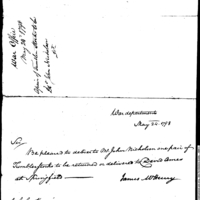 War Office
May 24. 1798
Pair of Tumbler Locks to be
Mr John Nicholson
War department
May 24. 1798
Sir
Be pleased to deliver to Mr John Nicholson one pair of
Tumbler Locks to be returned or delivered to David Ames
at Springfield
James McHenry